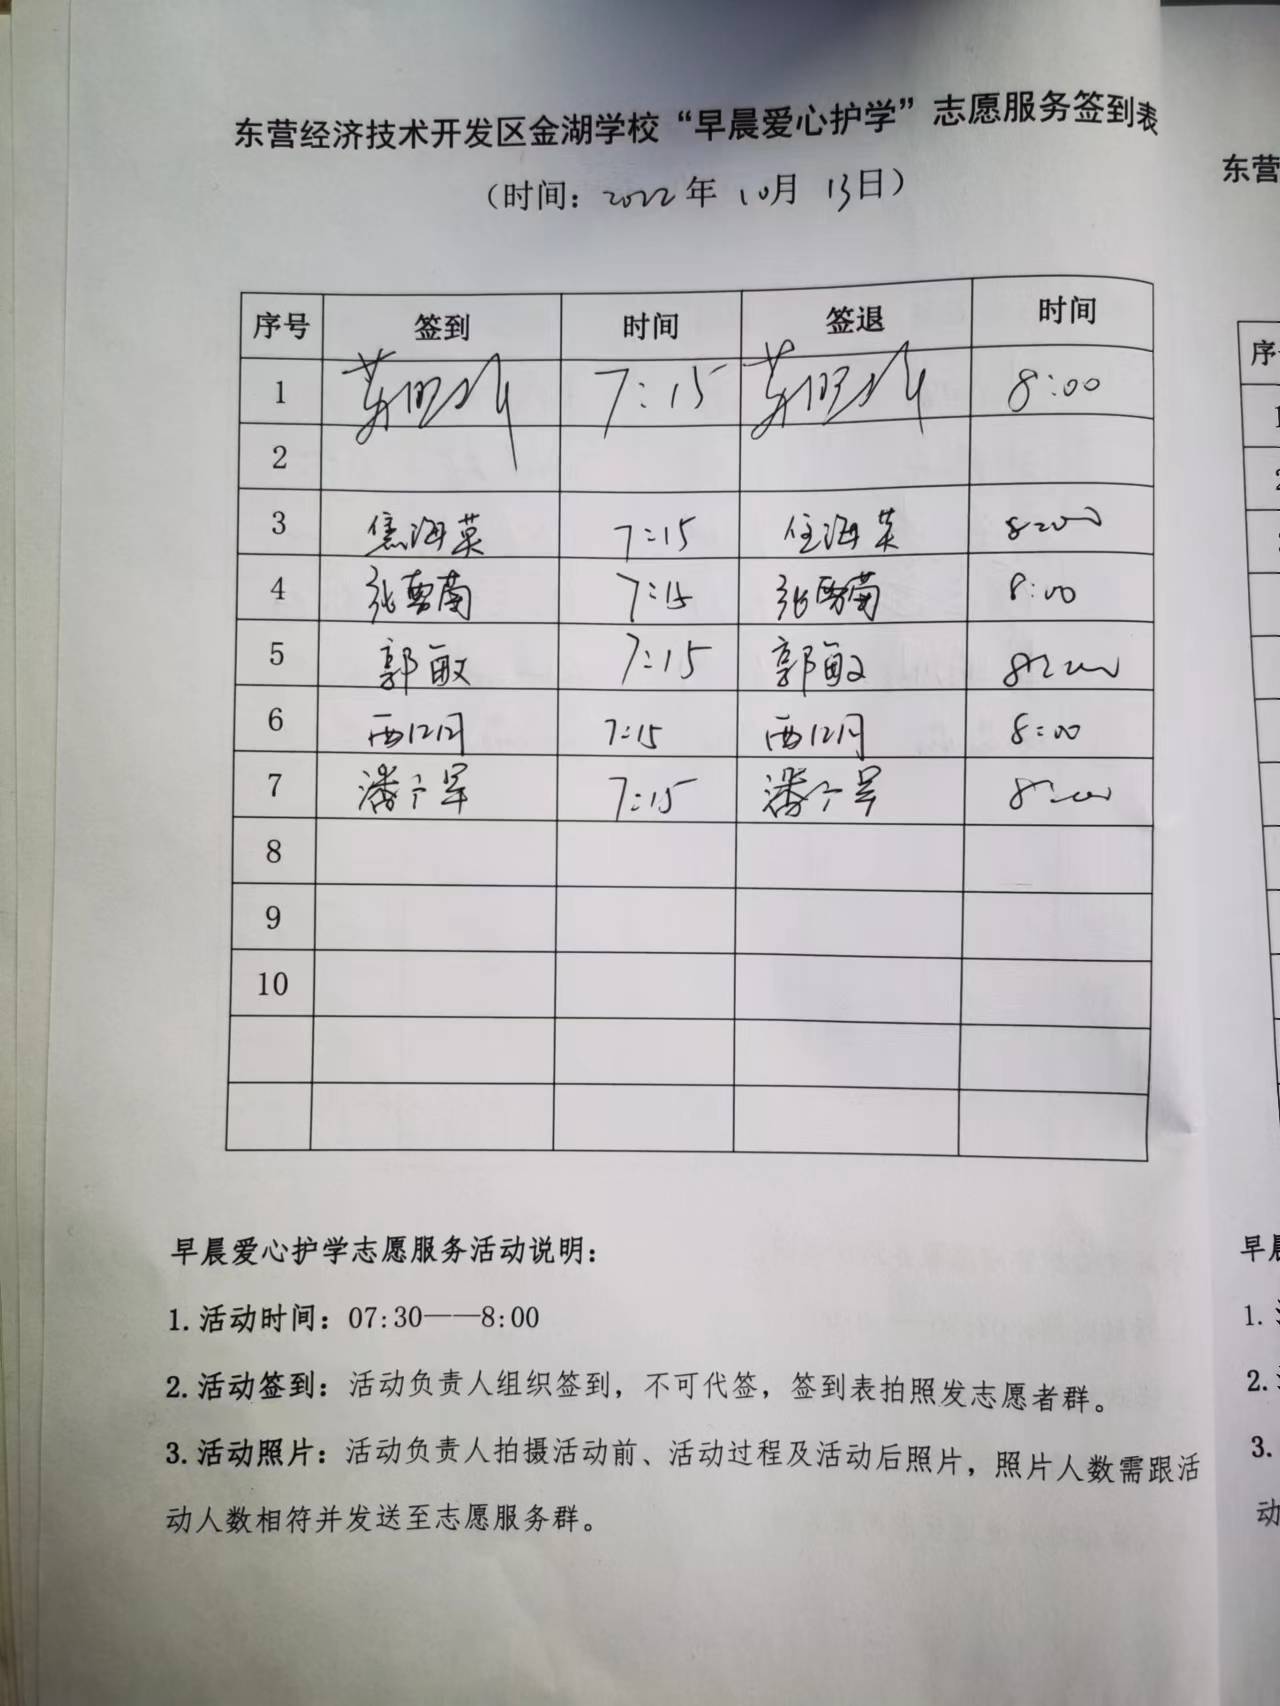 东营经济技术开发区金湖学校“早晨爱心护学”志愿服务签到表
（时间：2022年 10月 13日）
序号 签到 时间 签退 时间
1 7:15 8:00
2
3 焦海英 7:15 焦海英 8:00
4 7:15 8:00
5 郭敏 7:15 郭敏 8:00
6 7:15 8:00
7 7:15 8:00
8
9
10
早晨爱心护学志愿服务活动说明：
1.活动时间：07:30——8:00
2.活动签到：活动负责人组织签到，不可代签，签到表拍照发志愿者群。
3.活动照片：活动负责人拍摄活动前、活动过程及活动后照片，照片人数需跟活
动人数相符并发送至志愿服务群。
东营
序
1
2
早
1.
2.
3.
动